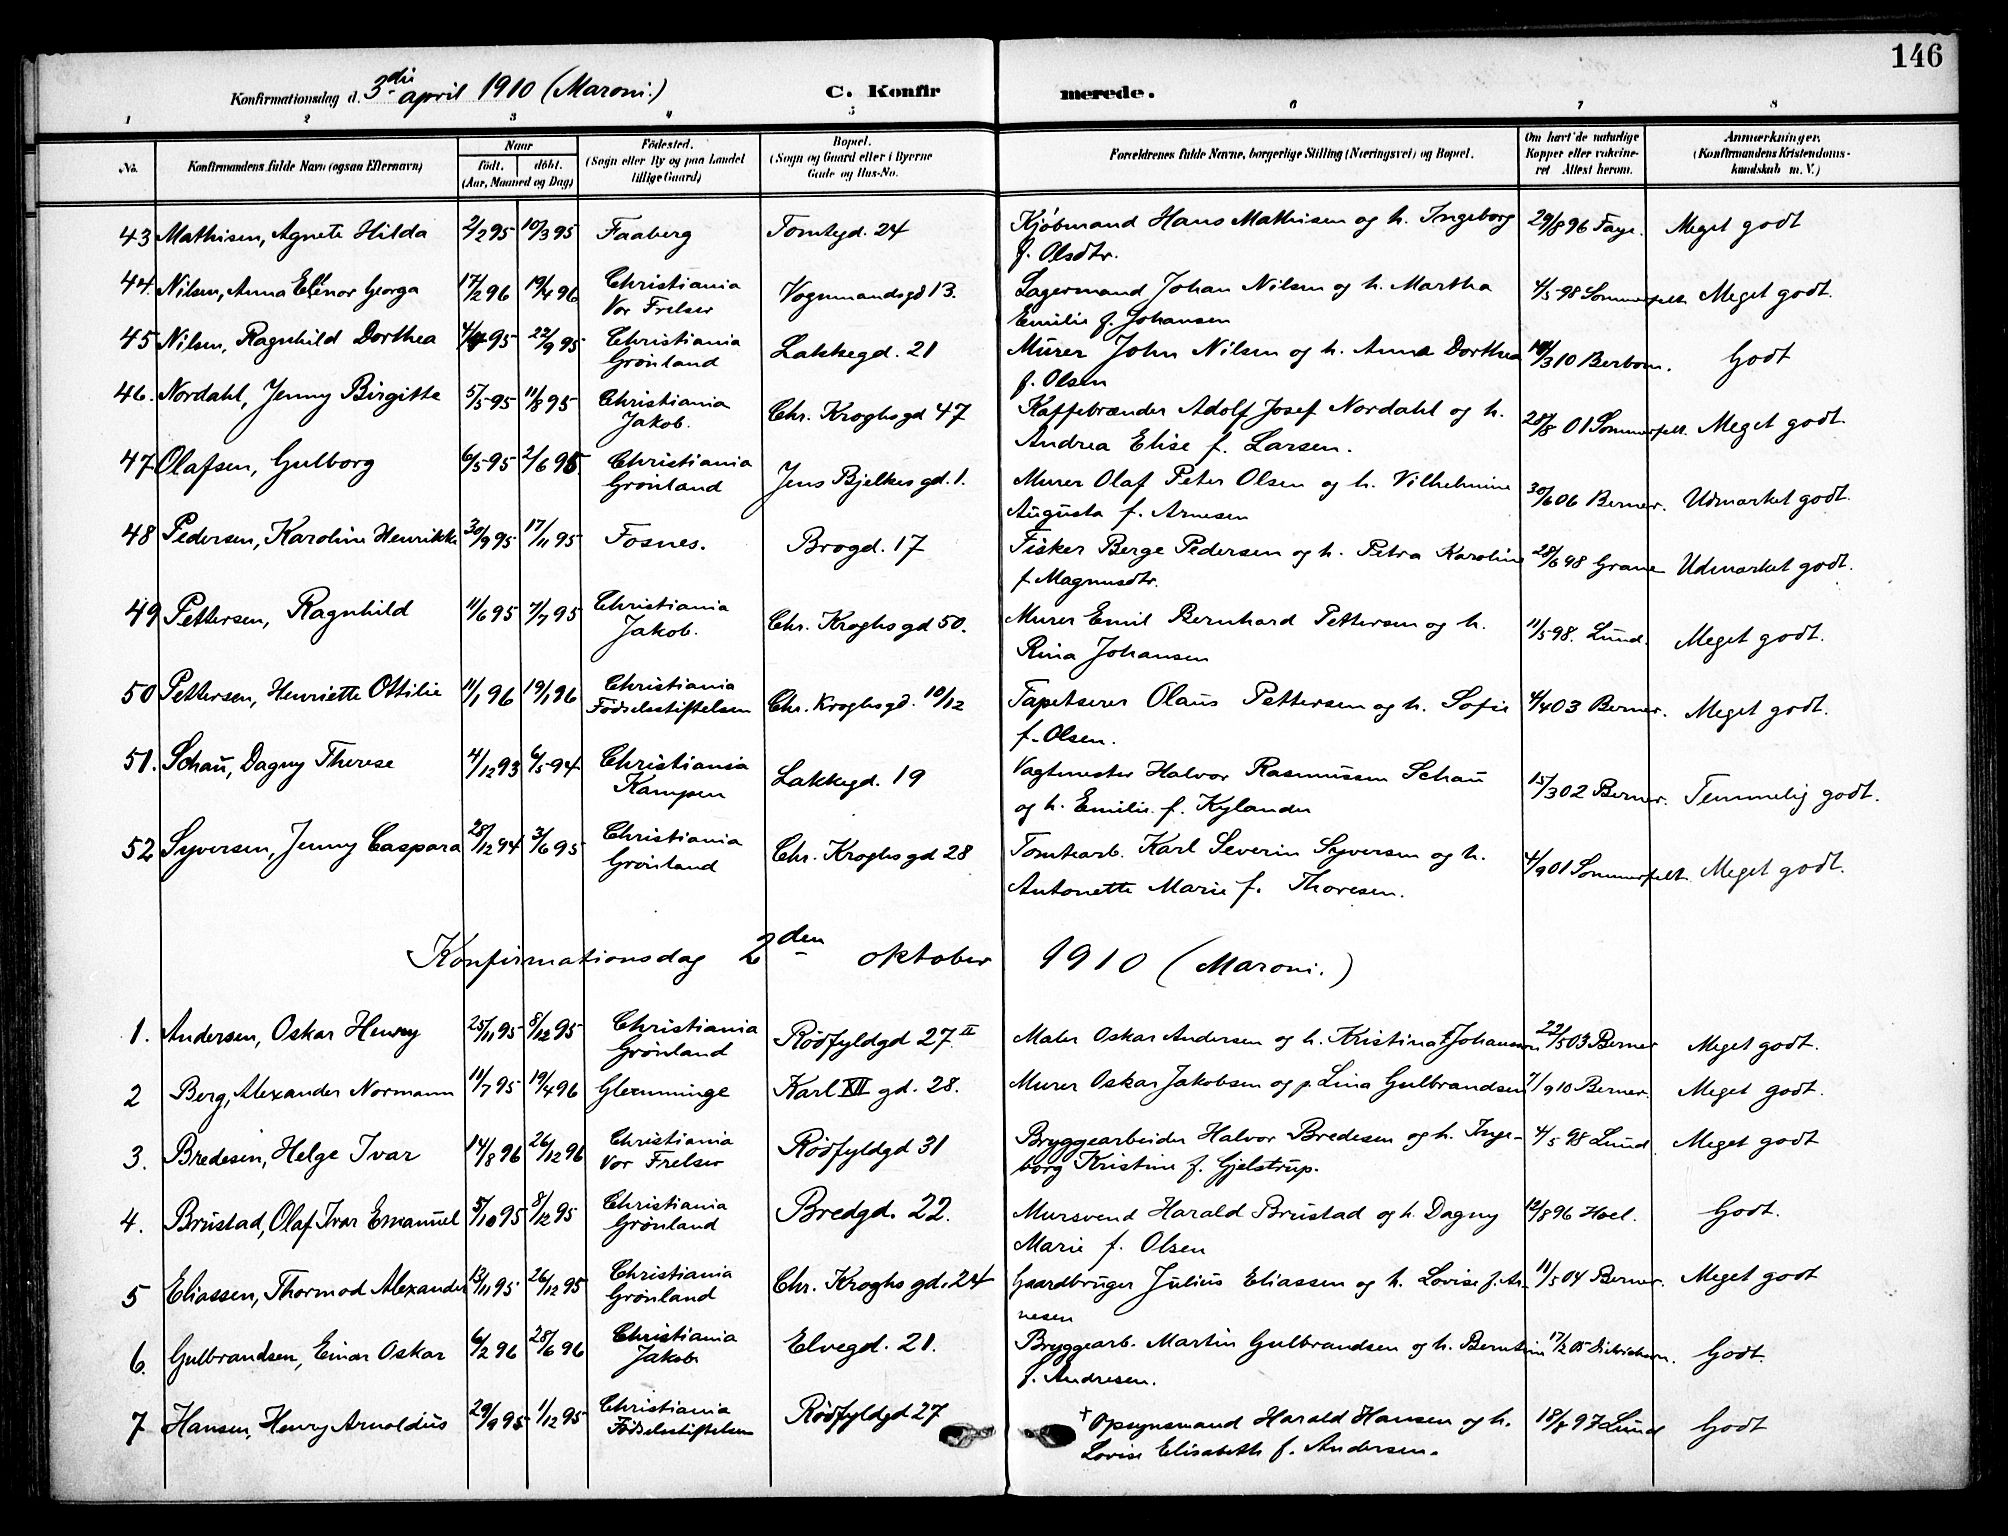 146
Konfirmationsdag d. 3die april 1910 (Maroni.) C. Konfirmerede.
1 2 3 4 5 6 7 8
No. Konfirmandens fulde Navn (ogsaa Efternavn) Naar født. døbt. (Aar, Maaned og Dag) Fødested. (Sogn eller By og paa Landet tillige Gaard) Bopæl. (Sogn og Gaard eller i Byerne Gade og Hus-No. Forældrenes fulde Navne, borgerlige Stilling (Næringsvei) og Bopæl. Om havt de naturlige Kopper eller vaccineret Attest herom. Anmærkninger. (Konfirmandens Kristendomskundskab m. V.)
43 Mathisen, Agnete Hilda 2/2 95 10/3 95 Faaberg Tomtegd. 24 Kjøbmand Hans Mathisen og h. Ingeborg 29/8 96 Faye. Meget godt
f. Olsdtr.
44. Nilsen, Anna Ellenor Georga 17/2 96 19/4 96 Christiania Vognmandsgd 13. Lagermand Johan Nilsen og h. Martha 4/5 98 Sommerfelt. Meget godt.
Vor Frelser Emilie f. Johansen
45 Nilsen, Ragnhild Dorthea 95 22/9 95 Christiania Lakkegd. 21 Murer John Nilsen og h. Anna Dorthea /3 10 Berbom. Godt
Grönland f. Olsen
46. Nordahl, Jenny Birgitte 5/5 95 11/8 95 Christiania Chr. Kroghsgd 47 Kaffebrænder Adolf Josef Nordahl og h. 28/8 01 Sommerfelt. Meget godt.
Jakob. Andrea Elise f. Larsen.
47 Olafsen, Gulborg 6/5 95 2/6 95. Christiania Jens Bjelkes gd. 1. Murer Olaf Peter Olsen og h. Vilhelmine 30/6 06 Berner. Udmærket godt.
Grönland Augusta f. Arnesen
48 Pedersen, Karoline Henrikke 30/9 95 17/11 95 Fosnes. Brogd. 17 Fisker Berge Pedersen og h. Petra Karoline 28/6 98 Grane Udmærket godt.
f. Magnusdtr.
49 Pettersen, Ragnhild 11/6 95 7/7 95 Christiania Chr. Kroghs gd 50. Murer Emil Bernhard Pettersen og h. 11/5 98. Lund. Meget godt.
Jakob. Rina Johansen
50 Pettersen, Henriette Ottilie 11/1 96 19/1 96 Christiania Chr. Kroghsgd. 10/12 Tapetserer Olaus Pettersen og h. Sofie 4/4 03 Berner. Meget godt.
Födselsstiftelsen f. Olsen.
51. Schau, Dagny Therese 4/12 93 6/5 94 Christiania Lakkegd. 19 Vagtmester Halvor Rasmussen Schau 15/3 02 Berner. Temmelig godt.
Kampen og h. Emilie f. Kylander
52 Syversen, Jenny Caspara 28/12 94 3/6 95 Christiania Chr. Kroghs gd 28 Tomtearb. Karl Severin Syversen og h. 4/9 01 Sommerfelt. Meget godt.
Grönland Antonette Marie f. Thoresen.
Konfirmationsdag 2den oktober 1910 (Maroni.)
1. Andersen, Oskar Henry 25/11 95 8/12 95 Christiania Rödfyldgd 27 II Maler Oskar Andersen og h. Kristina f. Johansson 22/5 03 Berner Meget godt.
Grönland
2 Berg, Alexander Normann 11/7 95 19/4 96 Glemminge Karl XII gd. 28. Murer Oskar Jakobsen og p. Lina Gulbrandsen 7/9 10 Berner. Meget godt.
3. Bredesen, Helge Ivar 14/8 96 26/12 96 Christiania Rödfyldgd 31 Bryggearbeider Halvor Bredesen og h. Inge- 4/5 98 Lund. Meget godt
Vor Frelser borg Kristine f. Gjelstrup.
4. Brustad, Olaf Ivar Emanuel 5/10 95 8/12 95 Christiania Bredgd. 22. Mursvend Harald Brustad og h. Dagny 12/8 96 Hoel. Godt.
Grönland Marie f. Olsen
5 Eliassen, Thormod Alexander 13/11 95 26/12 95 Christiania Chr. Kroghs gd. 24 Gaardbruger Julius Eliassen og h. Lovise f. Ar- 11/5 04 Berner. Meget godt
Grönland nesen
6. Gulbrandsen, Einar Oskar 6/2 96 28/6 96 Christiania Elvegd. 21. Bryggearb. Martin Gulbrandsen og h. Berntine 17/2 05 Dietrichson. Godt.
Jakob. f. Andresen.
7 Hansen, Henry Arnoldus 29/9 95 1/12 95 Christiania Rödfyldgd 27 † Opsynsmand Harald Hansen og h. 18/8 97 Lund Godt
Födselsstiftelsen Lovise Elisabeth f. Andersen.